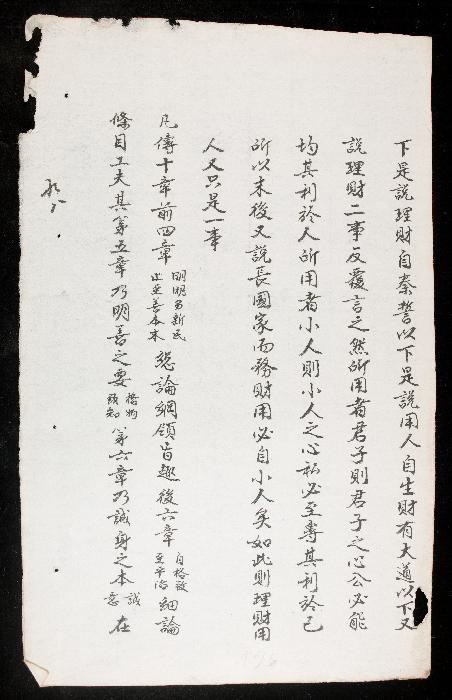 下是說理財自秦誓以下是說用人自生財有大道以下又
說理財二事反覆言之然所用者君子則君子之心公必能
均其利於人所用者小人則小人之心私必至專其利於己
所以末後又說長國家而務財用必自小人矣如此則理財用
人又只是一事
凡傳十章前四章 明明德新民 止至善本末 總論綱領旨趣後六章 自格致 至平治 細論
條目工夫其第五章乃明善之要 格物 致知 第六章乃誠身之本 誠 意 在